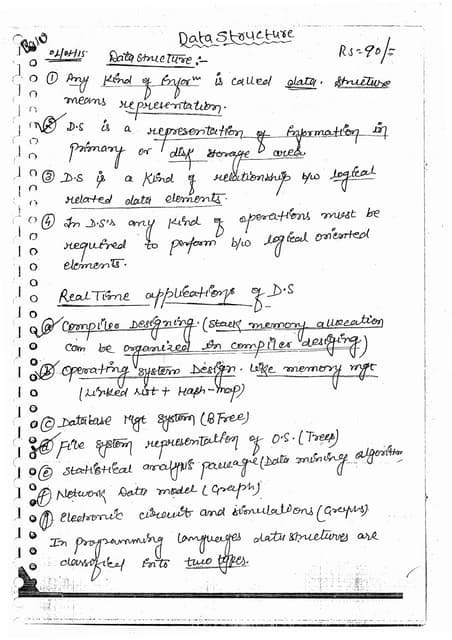 Data Structure
Rs=90/=
04/04/15 Data structure:-
① Any kind of Inforⁿ is called data. structure
means representation.
② D.S is a representation of Information in
primary or disk storage area
③ D.S is a kind of relationship b/w logical
related data elements.
④ In D.S's any kind of operations must be
required to perform b/w logical oriented
elements.
Real Time applications of D.S
ⓐ Compiler Designing. (stack memory allocation
can be organized in compiler designing)
ⓑ Operating system Design. like memory mgt
(Linked list + Hash-map)
ⓒ Database Mgt System (B Tree)
ⓓ File system representation of O.S. (Trees)
ⓔ Statistical analysis package (Data mining algorithm
ⓕ Network Data model (Graph)
ⓖ Electronic circuit and simulations (Graphs)
In programming languages data structures are
classified into two types.